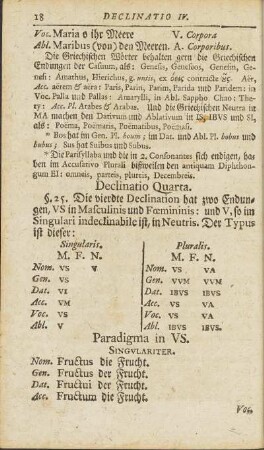 18 DECLINATIO IV.
Voc. Maria o ihr Meere V. Corpora
Abl. Maribus (von) den Meeren. A. Corporibus.
Die Griechischen Wörter behalten gern die Griechischen
Endungen der Casuum, als: Genesis, Geneseos, Genesin, Gene-
si: Amathus, Hierichus, g. untis, ex óεις contracte ἕς. Aër,
aërem & aëra: Paris, Parin, Parim, Parida und Paridem: in
Voc. Palla und Pallas: Amarylli, in Abl. Sappho Chao: The-
ty: Acc. Pl. Arabes & Arabas. Und die Griechischen Neutra in
MA machen den Dativum und Ablativum in IBUS und SI,
als: Poëma, Poëmaris, Poëmatibus, Poëmasi.
* Bos hat im Gen. Pl. boum; im Dat. und Abl. Pl. bobus und
bubus; Sus hat Suibus und Subus.
* Die Parisyllaba und die in 2. Consonantes sich endigen, ha-
ben im Accusativo Plurali bißweilen den antiquam Diphthon-
gum EI: omneis, parteis, plureis, Decembreis.
Declinatio Quarta.
§. 25. Die vierdte Declination hat zwo Endun-
gen, VS in Masculinis und Fœmininis: und V, so im
Singulari indeclinabile ist, in Neutris. Der Typus
ist dieser:
Singularis. Pluralis.
M. F. N. M. F. N.
Nom. VS V Nom. VS VA
Gen. VS Gen. VVM VVM
Dat. VI Dat. IBVS IBVS
Acc. VM Acc. VS VA
Voc. VS Voc. VS VA
Abl. V Abl. IBVS IBVS.
Paradigma in VS.
SINGVLARITER.
Nom. Fructus die Frucht.
Gen. Fructus der Frucht.
Dat. Fructui der Frucht.
Acc. Fructum die Frucht.
Voc.